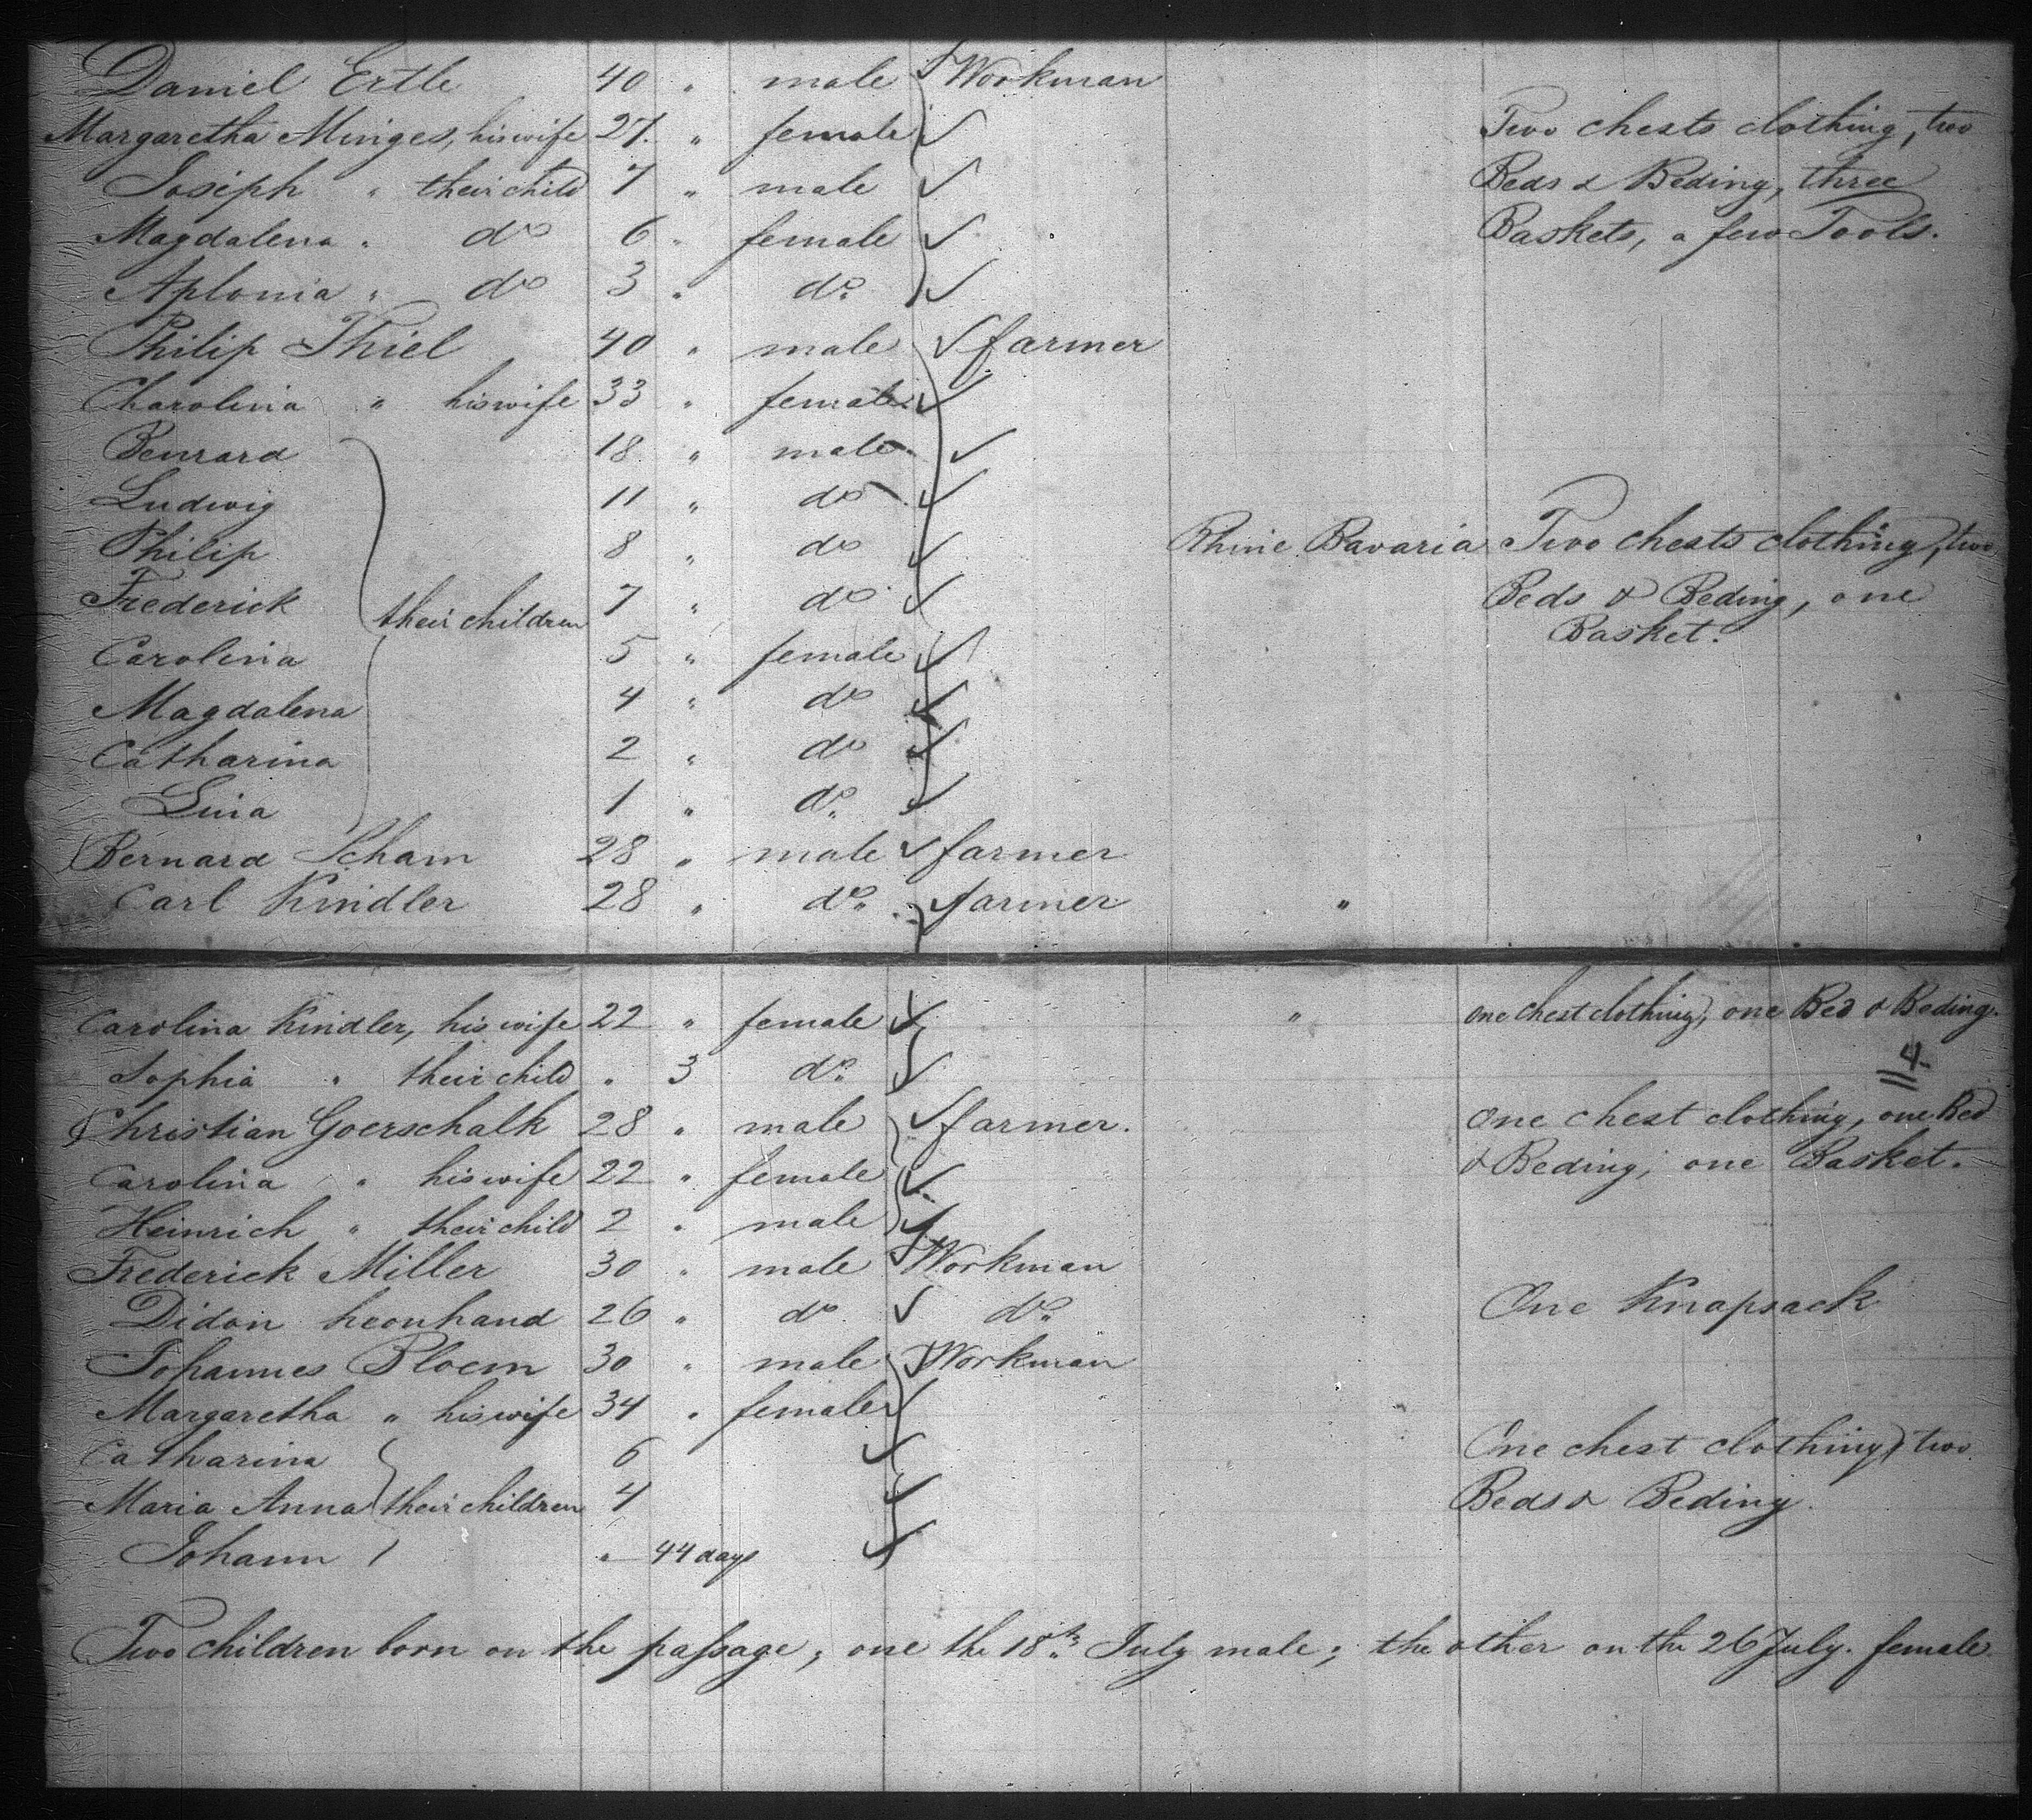 Daniel Ertle 40 " male Workman
Margaretha Minges, his wife 27. " female Two chests clothing, two
Joseph " their child 7 " male Beds & Beding, three
Magdalena " do 6 " female Baskets, a few Tools.
Aplonia " do 3 " do.
Philip Thiel 40 " male farmer
Charolina " his wife 33 " female
Benrard 18 " male
Ludwig 11 " do
Philip 8 " do Rhine Bavaria Two chests clothing, two
Frederick 7 " do Beds & Beding, one
their children Basket.
Carolina 5 " female
Magdalena 4 " do
Catharina 2 " do
Lina 1 " do.
Bernard Scham 28 " male farmer
Carl Kindler 28 " do. farmer "
Carolina Kindler, his wife 22 " female " one chest clothing, one Bed & Beding.
Sophia " their child " 3 do. 4.
Christian Goerschalk 28 " male farmer. one chest clothing, one Bed
Carolina " his wife 22 " female & Beding, one Basket.
Heinrich " their child 2 " male
Frederick Miller 30 " male Workman
Didon heonhand 26 " do. do. One Knapsack
Johannes Bloem 30 " male Workman
Margaretha " his wife 34 " female
Catharina 6 One chest clothing, two
Maria Anna their children 4 Beds & Beding.
Johann " 44 days
Two children born on the passage, one the 18th July male; the other on the 26 July. female